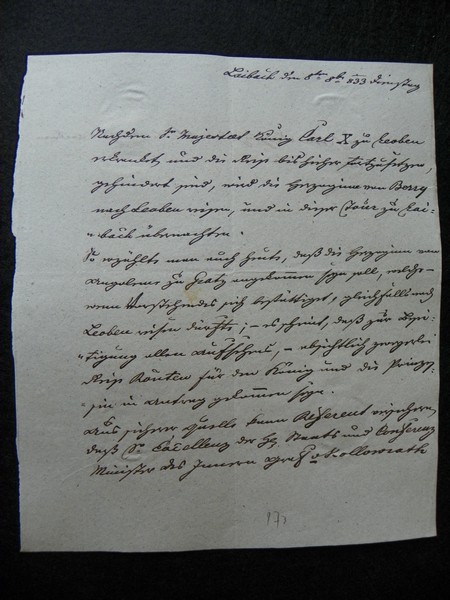 Laibach den 8ten 8br 833 Dienstag
Nachdem Sr Majestaet König Carl X zu Leoben
erkrankt und die Reise bis hieher fortzusetzen,
gehindert sind, wird die Herzoginn von Berry
nach Leoben reisen, und in dieser Tour zu Lai-
bach übernachten.
So erzählte man auch heute, daß die Herzoginn von
Angoleme zu Gratz angekommen seyn soll, welche
wenn Vorstehendes sich bestättiget, gleichfalls nach
Leoben reisen dürfte; – es scheint, daß zur Besei-
tigung allen Aufsehens, – absichtlich zweyerlei
Reise Routen für den König und die Prinzes-
sin in Antrag gekommen seyn.
Aus sicherer Quelle kann Referent versichern,
daß Sr Excellenz der H Staats und Conferenz
Minister des Innern Graf v Kollowrath
173